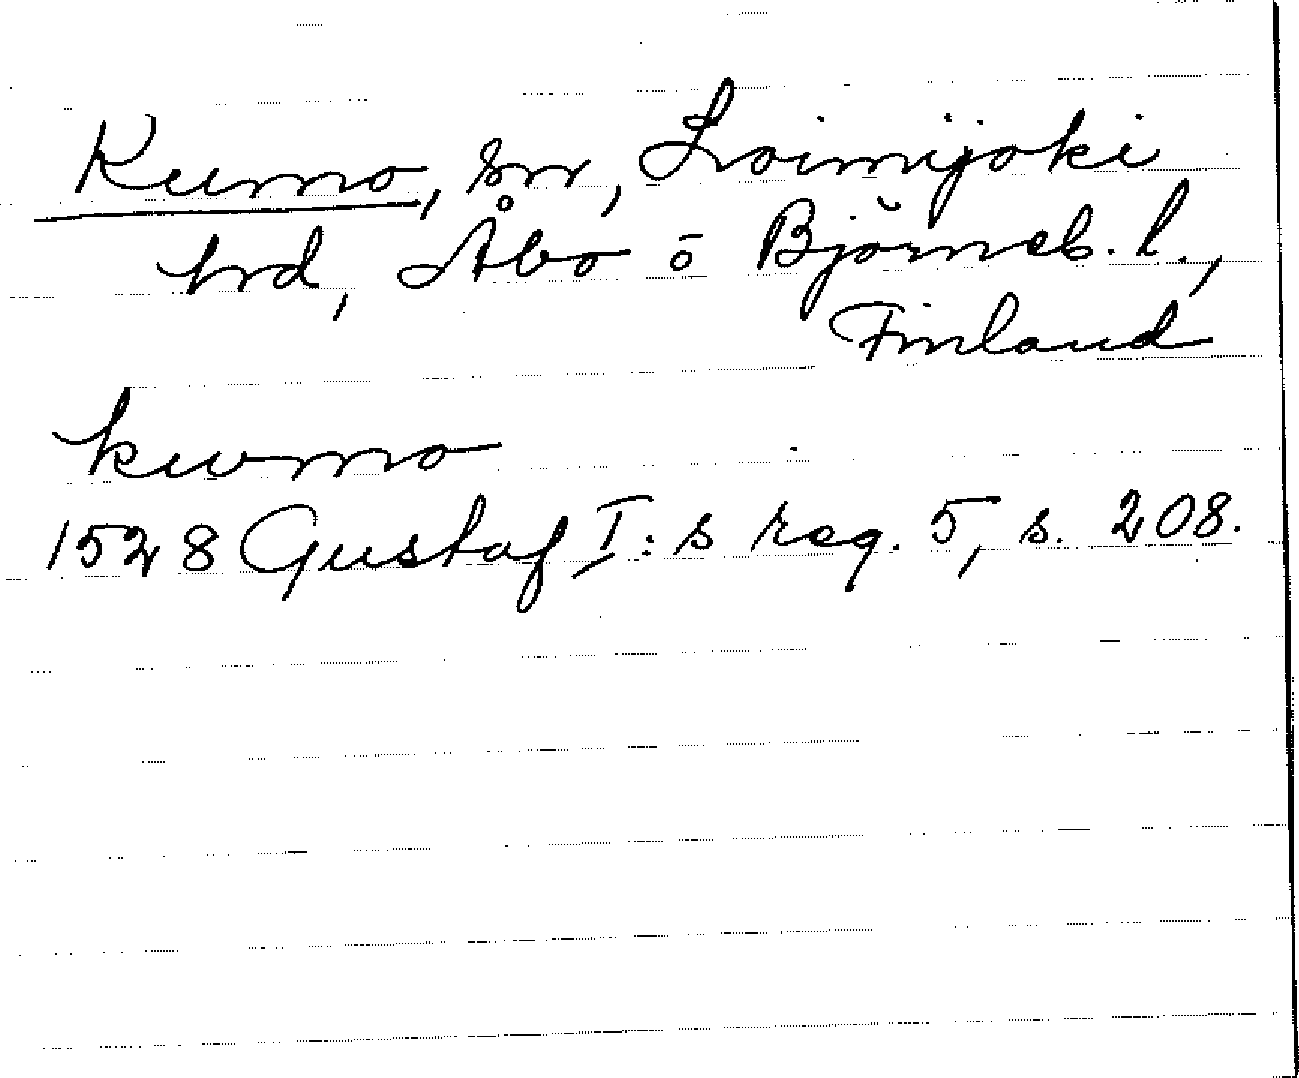 Kumo, sn, Loimijoki
hrd, Åbo o Björneb. l.,
Finland
kwmo
1528 Gustaf I:s reg. 5, s. 208.